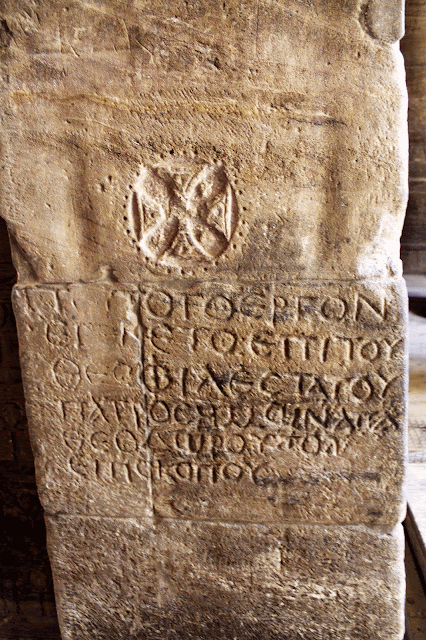 ΤΟ ΕΡΓΟΝ
ΕΓΕΝΕΤΟ ΕΠΙ ΤΟΥ
ΘΕΟΦΙΛΕϹΤΑΤΟΥ
ΠΑΤΡΟϹ ΗΜΩΝ ΑΠΑ
ΘΕΟΔΩΡΟΥ ΤΟΥ
ΕΠΙϹΚΟΠΟΥ